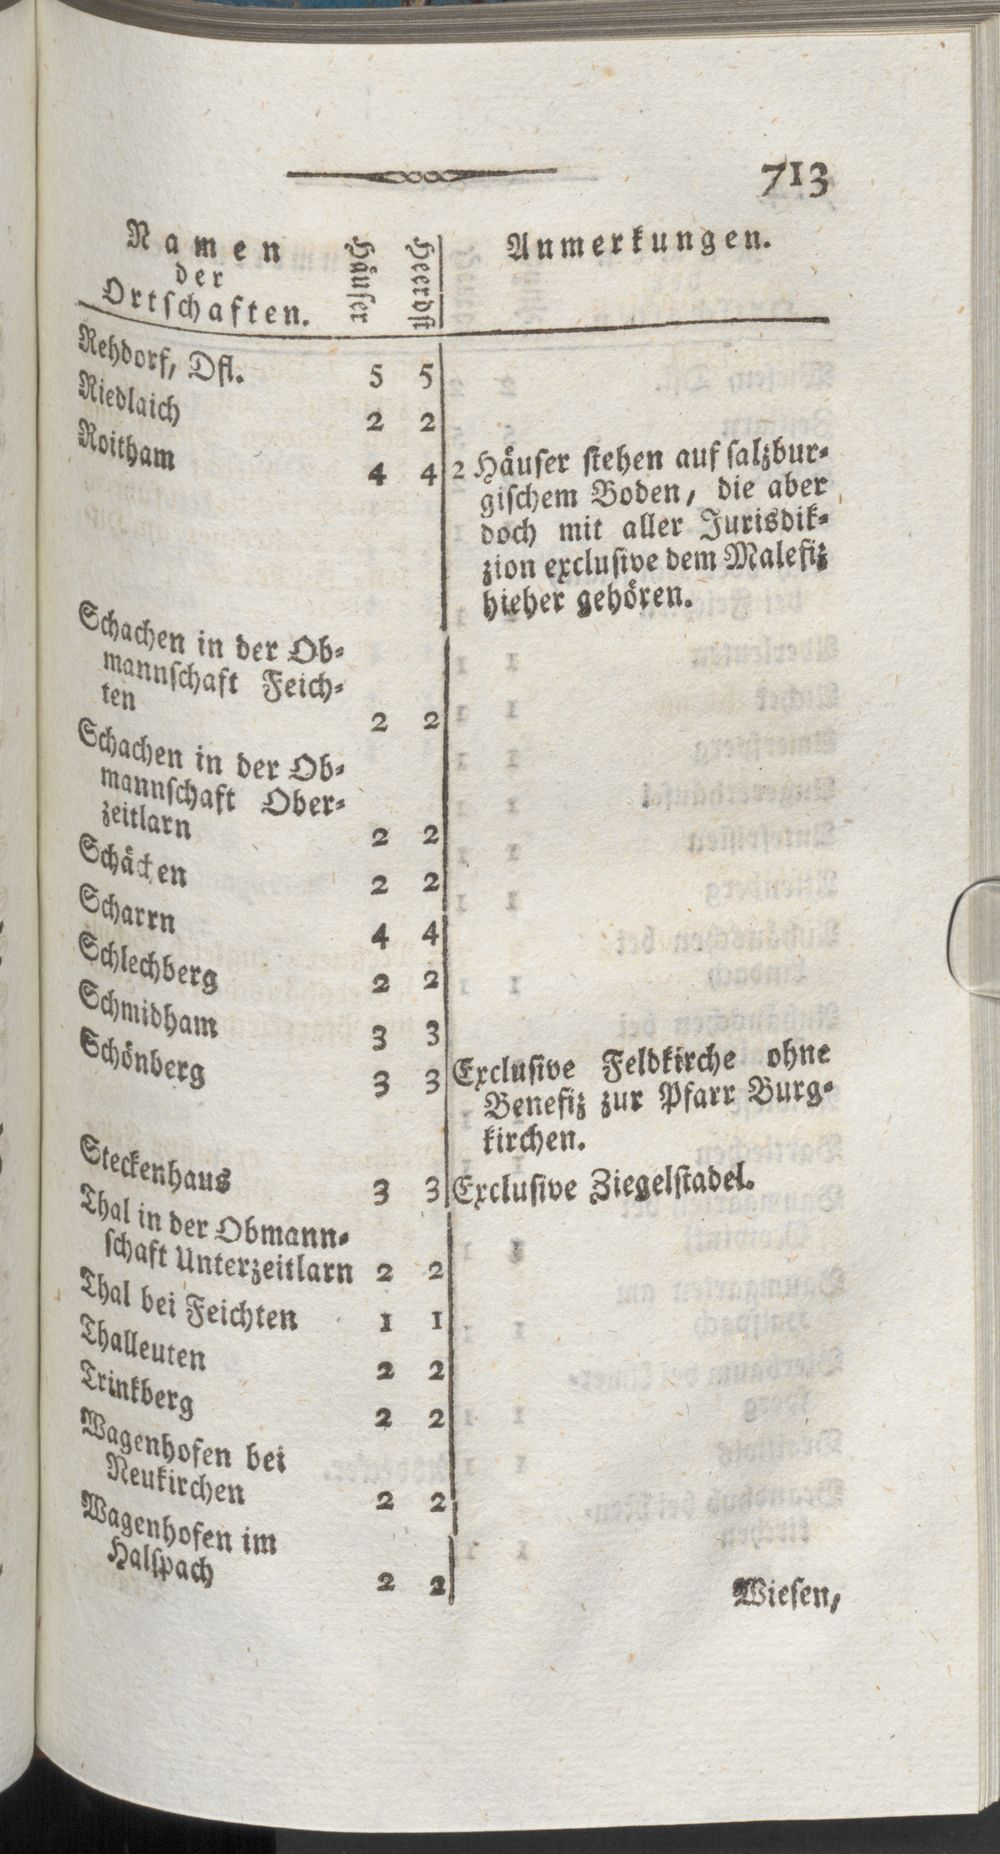 713
Namen der Ortschaften. Häuser Heerdst Anmerkungen.
Rehdorf, Dfl. 5 5
Riedlaich 2 2
Roitham 4 4 2 Häuser stehen auf salzbur-
gischem Boden, die aber
doch mit aller Jurisdik-
zion exclusive dem Malefiz
hieher gehören.
Schachen in der Ob-
mannschaft Feich-
ten 2 2
Schachen in der Ob-
mannschaft Ober-
zeitlarn 2 2
Schächen 2 2
Scharrn 4 4
Schlechberg 2 2
Schmidham 3 3
Schönberg 3 3 Exclusive Feldkirche ohne
Benefiz zur Pfarr Burg-
kirchen.
Steckenhaus 3 3 Exclusive Ziegelstadel.
Thal in der Obmann-
schaft Unterzeitlarn 2 2
Thal bei Feichten 1 1
Thalleuten 2 2
Trinkberg 2 2
Wagenhofen bei
Neukirchen 2 2
Wagenhofen im
Halspach 2 2
Wiesen,